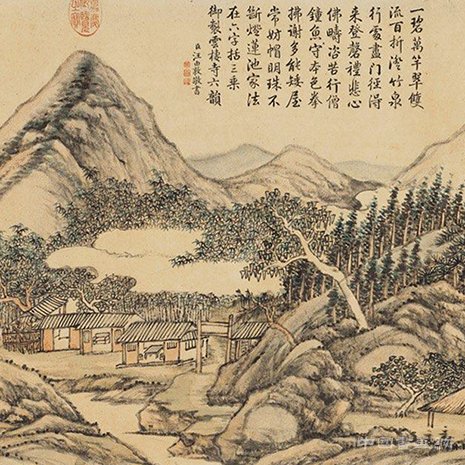 一碧萬竿翠雙
流百折澄竹泉
行處盡門徑得
來登磬禮悲心
佛疇咨苦行僧
鐘魚守本色拳
拂謝多能矮屋
常妨帽明珠不
斷燈蓮池家法
在六字括三乘
御製雲棲寺六韻
臣汪由敦敬書